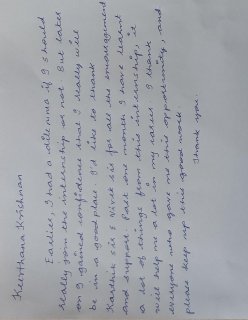 Keerthana Krishnan
Earlier, I had a dilemma if I should
really join the internship or not. But later
on I gained confidence that I really will
be in a good place. I'd like to thank
Karthik sir & Vivek sir for all the encouragement
and support. Past one month I have learnt
a lot of things from this internship, it
will help me a lot in my career. I thank
everyone who gave me this opportunity, and
please keep up this good work
Thank you.